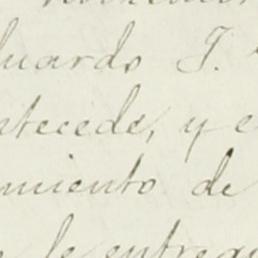 duardo J.
ntecede, y e
miento de
e le entreg